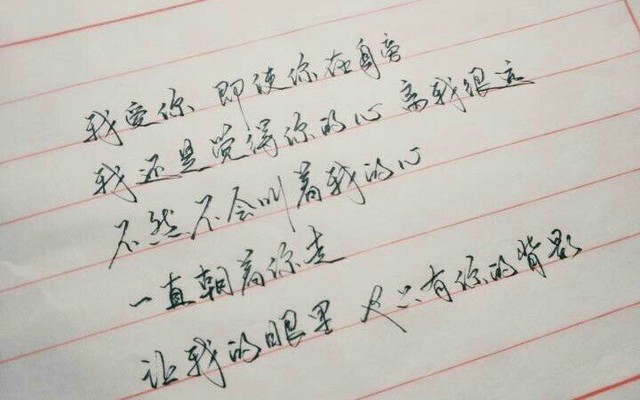 我爱你 即使你在身旁
我还是觉得你的心 离我很远
不然不会叫着我的心
一直朝着你走
让我的眼里 又只有你的背影